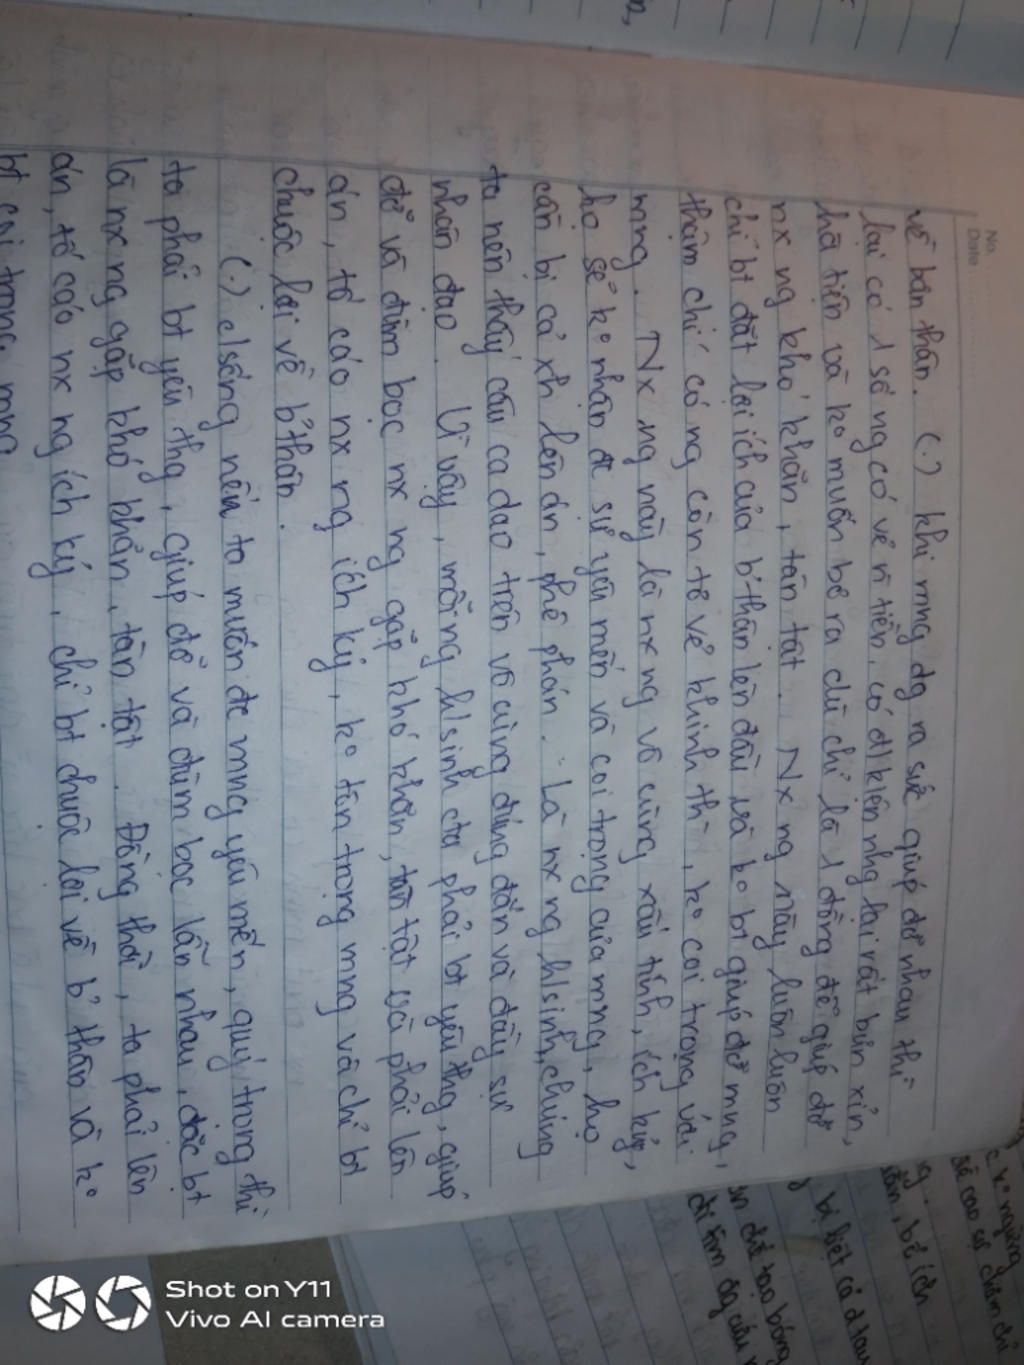 No.
Date
về bản thân. (.) khi mng đg ra sức giúp đỡ nhau thì
lại có 1 số ng có vẻ n` tiền, có đ/kiện nhg lại rất bủn xỉn,
hà tiện và ko muốn bỏ ra dù chỉ là 1 đồng để giúp đỡ
nx ng khó khăn, tàn tật. Nx ng này luôn luôn
chỉ bt đặt lợi ích của b'thân lên đầu và ko bt giúp đỡ mng,
thậm chí có ng còn tỏ vẻ khinh thị, ko coi trọng với
mng. Nx ng này là nx ng vô cùng xấu tính, ích kỷ,
họ sẽ ko nhận đc sự yêu mến và coi trọng của mng, họ
còn bị cả xh lên án, phê phán. Là nx ng h/sinh, chúng
ta nên thấy câu ca dao trên vô cùng đúng đắn và đầy sự
nhân đạo. Vì vậy, mỗi ng h/sinh cta phải bt yêu thg, giúp
đỡ và đùm bọc nx ng gặp khó khăn, tàn tật và phải lên
án, tố cáo nx ng ích kỷ, ko tôn trọng mng và chỉ bt
chuộc lợi về b'thân.
(.) c/sống nếu ta muốn đc mng yêu mến, quý trọng thì
ta phải bt yêu thg, giúp đỡ và đùm bọc lẫn nhau, đặc bt
là nx ng gặp khó khăn, tàn tật. Đồng thời, ta phải lên
án, tố cáo nx ng ích kỷ, chỉ bt chuộc lợi về b'thân và ko
bt coi trọng mng
Shot on Y11
Vivo AI camera